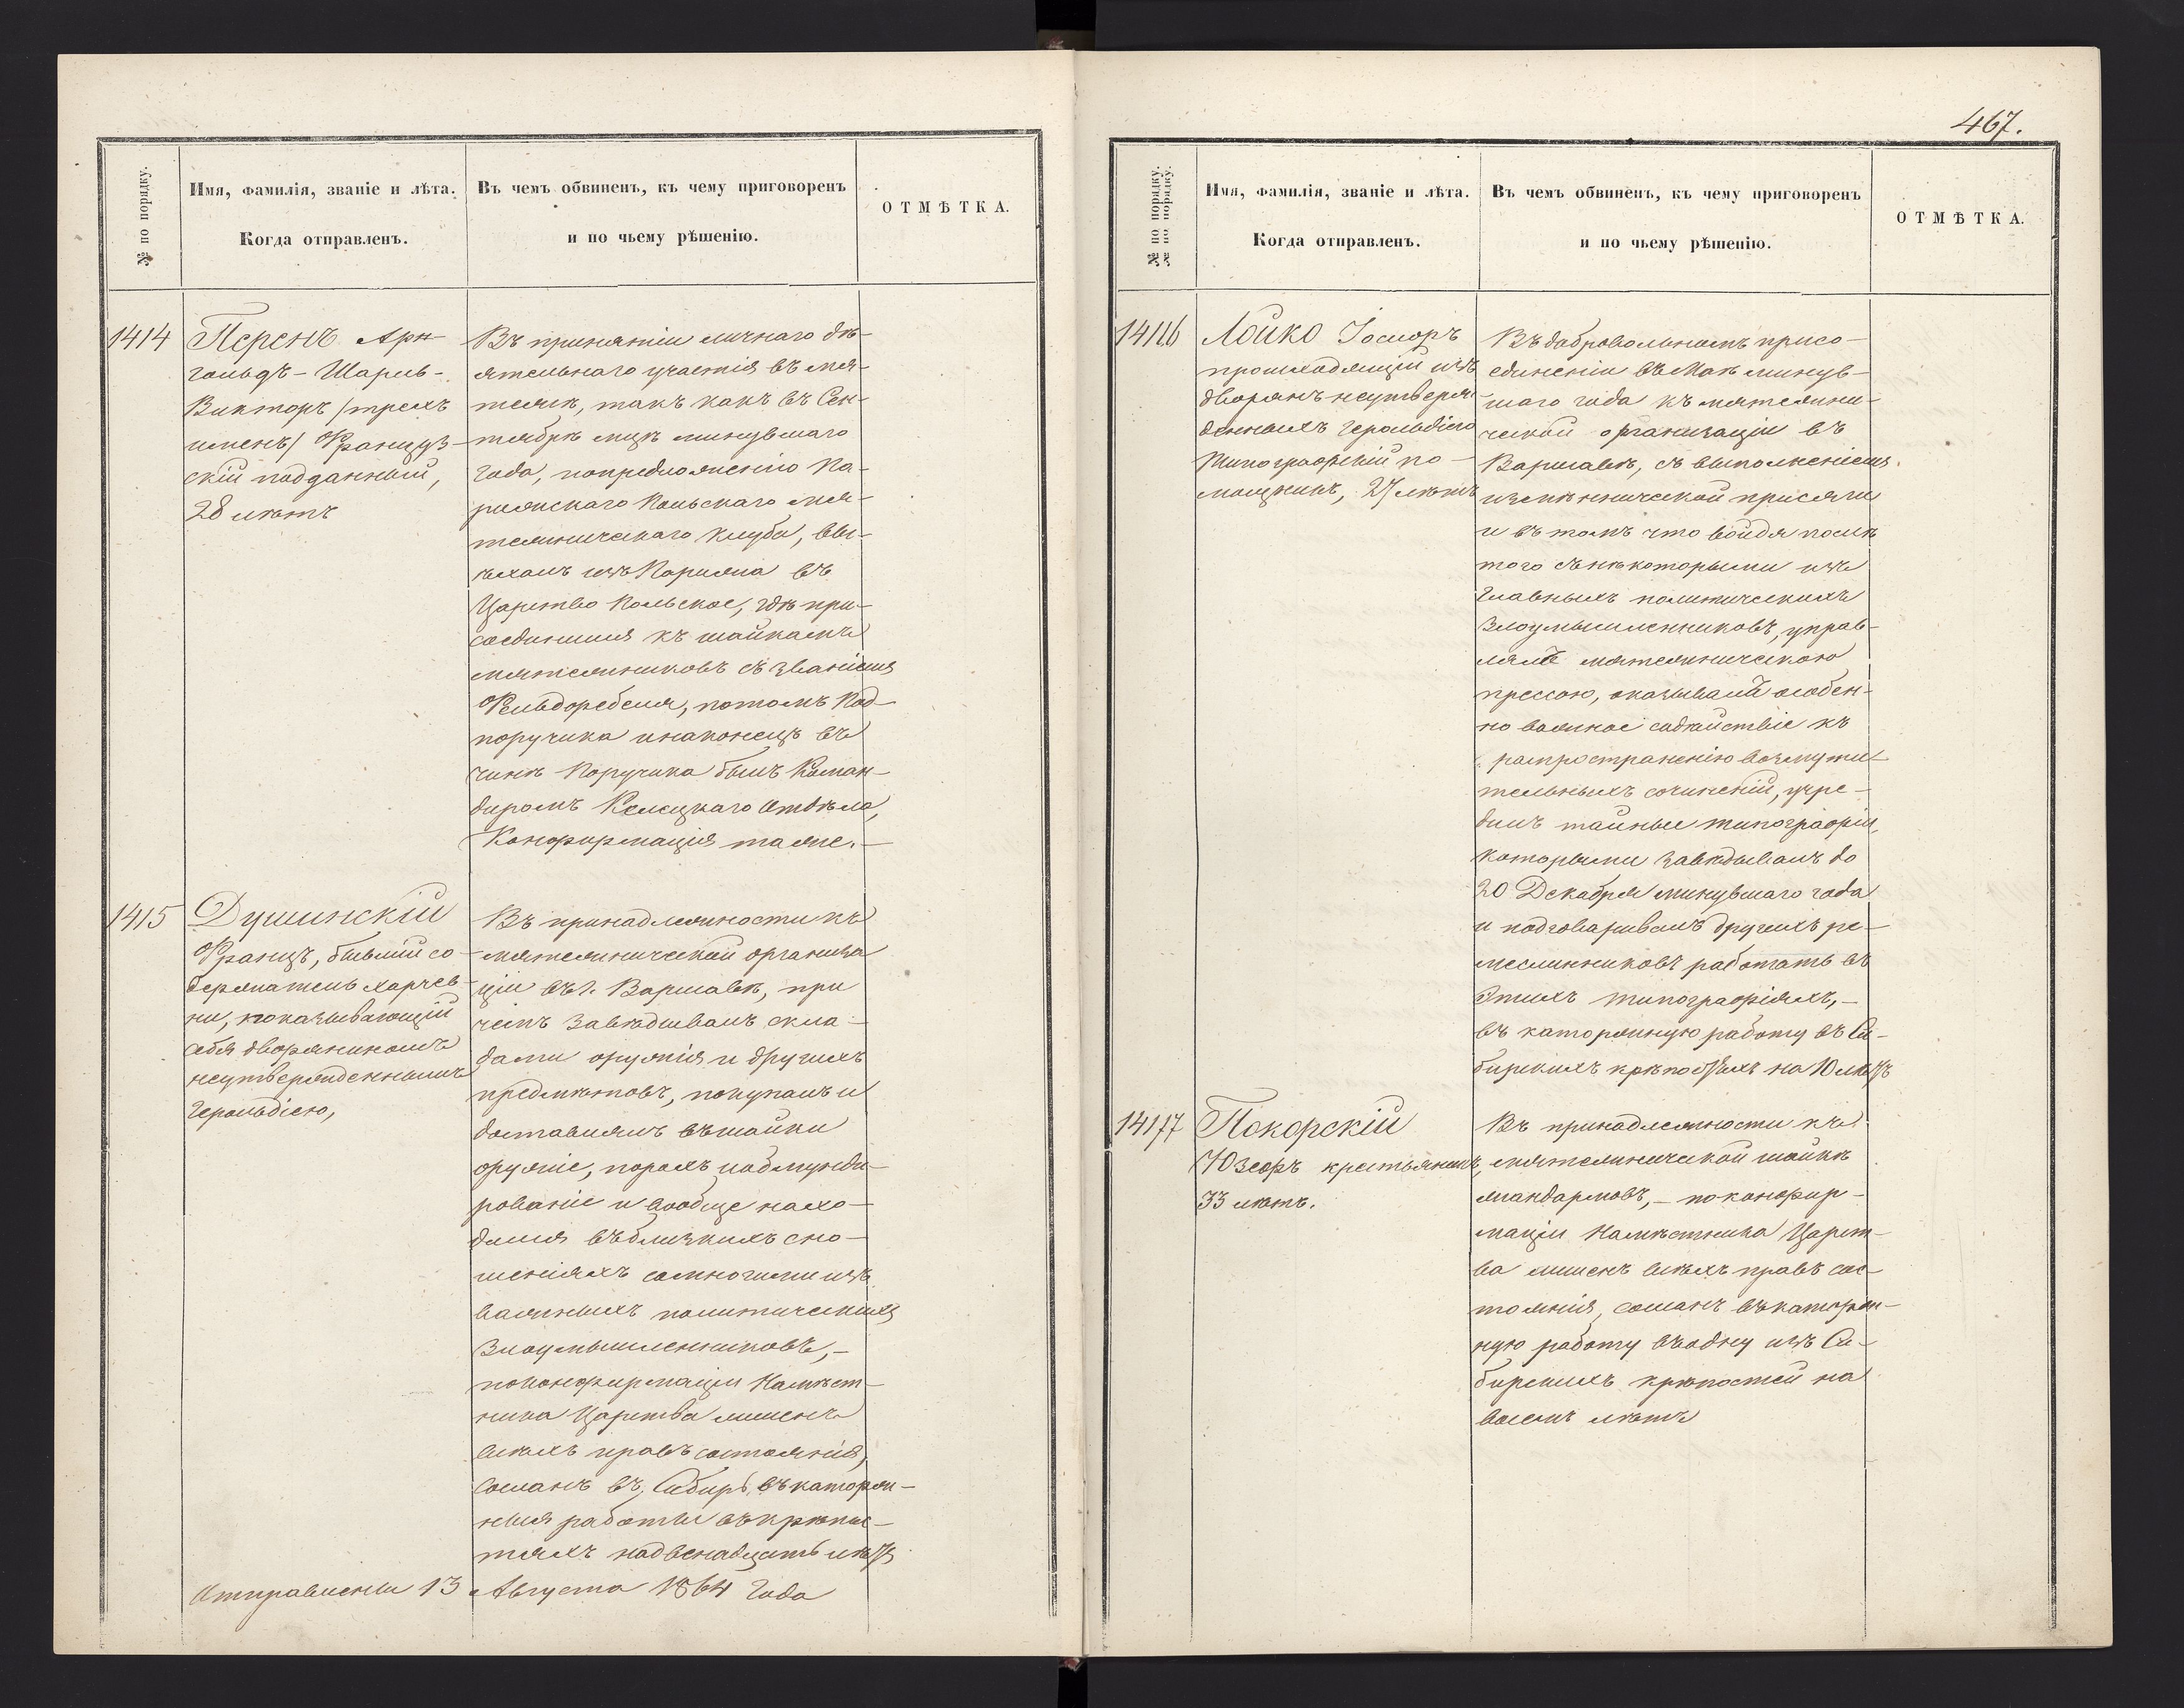 № по порядку.
Имя, Фамилія, званіе и лѣта.
Когда отправленъ.
Въ чемъ обвиненъ, къ чему приговоренъ
и по чьему рѣшенію.
ОТМѢТКА.
1414
Перенъ Арн
гольдъ-Шарль-
Викторъ /трехъ
именъ/ Француз-
скій подданный,
28 лѣтъ
Въ принятіи личнаго дѣ-
ятельнаго участія въ мя-
тежѣ, такъ какъ въ Сен-
тябрѣ мцѣ минувшаго
года, по предложенію Па-
рижскаго Польскаго мя-
тежническаго клуба, вы-
ѣхалъ изъ Парижа въ
Царство Польское, гдѣ при-
соединился къ шайкамъ
мятежниковъ съ званіемъ
Фельдфебеля, потомъ Под-
поручика и наконецъ въ
чинѣ Поручика былъ Коман-
диромъ Келецкаго отдѣла,
Конфирмація таже.-
1415
Душинскій
Францъ, бывшій со-
держатель харчев-
ни, показывающій
себя дворяниномъ
неутвержденнымъ
Герольдіею,
Въ принадлежности къ
мятежнической организа
ціи въ г. Варшавѣ, при
чемъ завѣдывалъ скла-
дами оружія и другихъ
предметовъ, покупалъ и
доставлялъ въ шайки
оружіе, порохъ и обмунди-
рованіе и вообще нахо-
дился въ близкихъ сно-
шеніяхъ со многими изъ
важныхъ политическихъ
Злоумышленниковъ,-
по конфирмаціи Намѣст-
ника Царства лишенъ
всѣхъ правъ состоянія,
сосланъ въ Сибирь въ каторж-
ныя работы въ крѣпос-
тяхъ на двенадцать лѣтъ
Отправлены 13 Августа 1864 года
467.
№ по порядку.
Имя, Фамилія, званіе и лѣта.
Когда отправленъ.
Въ чемъ обвиненъ, къ чему приговоренъ
и по чьему рѣшенію.
ОТМѢТКА.
1416
Лойко Іосифъ
происходящій изъ
дворянъ неутверж-
денныхъ Герольдіею
Типографскій по-
мощникъ, 27 лѣтъ
Въ добровольномъ присо-
единеніи въ Маѣ минув-
шаго года къ мятежни-
ческой организаціи въ
Варшавѣ, съ выполненіемъ
измѣннической присяги
и въ томъ что войдя послѣ
того съ нѣкоторыми изъ
главныхъ политическихъ
Злоумышленниковъ, управ-
лялъ мятежническою
прессою, оказывалъ особен-
но важное содѣйствіе къ
распространенію возмути-
тельныхъ сочиненій, учре-
дилъ тайныя типографіи,
которыми завѣдывалъ до
20 Декабря минувшаго года
и подговаривалъ другихъ ре-
месленниковъ работать въ
этихъ типографіяхъ,-
въ каторжную работу въ Си-
бирскихъ крѣпостяхъ на 10 лѣтъ
1417
Покорскій
Юзефъ крестьянинъ,
33 лѣтъ.
Въ принадлежности къ
мятежнической шайкѣ
жандармовъ,- по конфир-
маціи Намѣстника Царст-
ва лишенъ всѣхъ правъ сос-
тоянія, сосланъ въ каторж-
ную работу въ одну изъ Си-
бирскихъ крѣпостей на
восемь лѣтъ